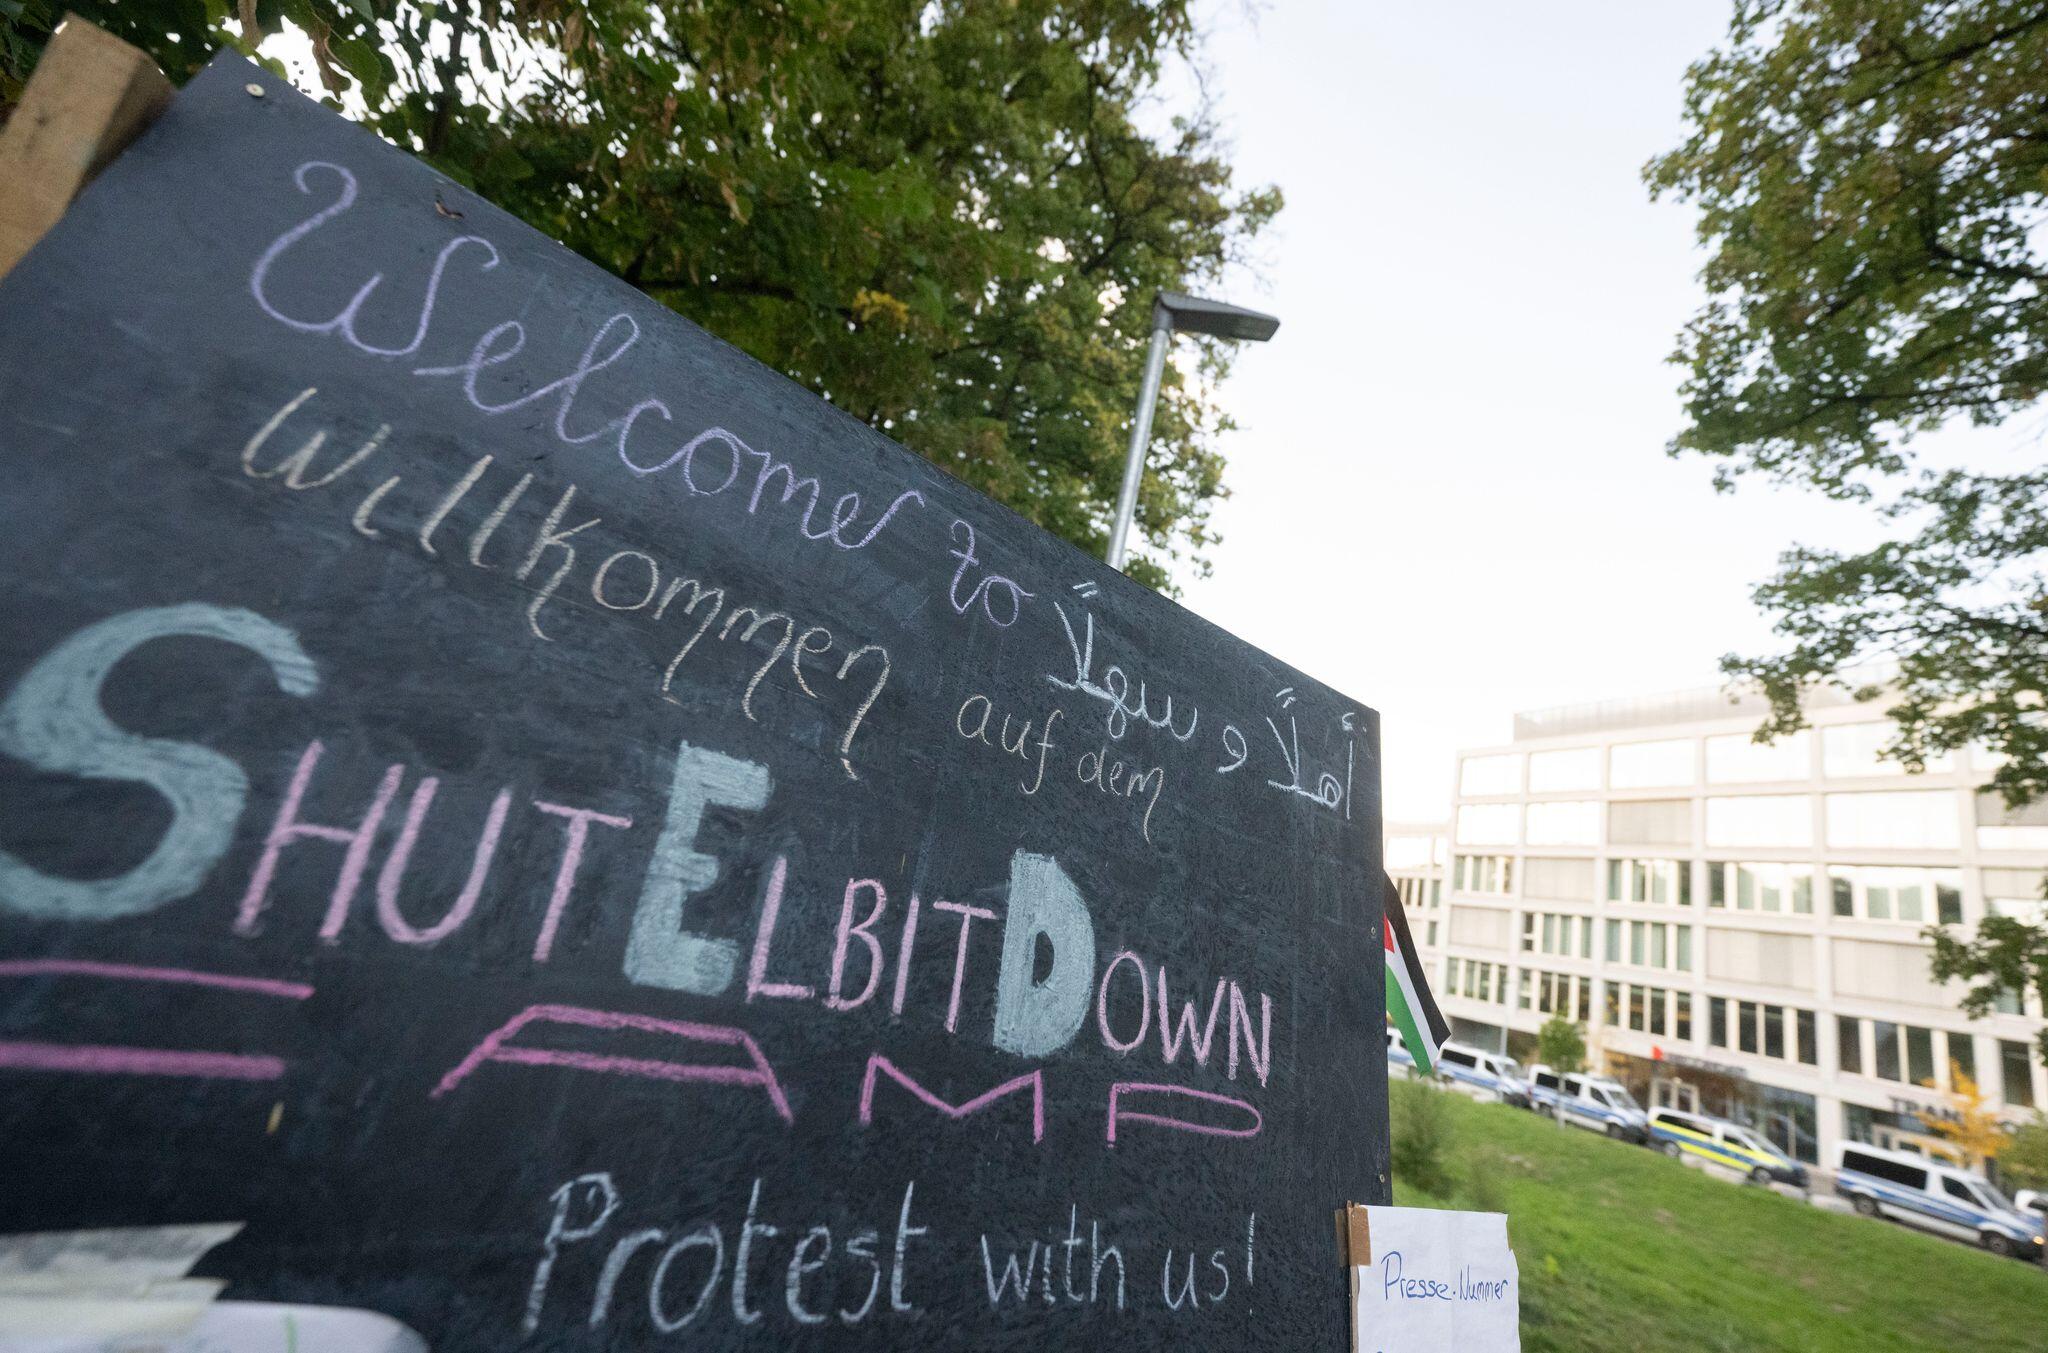 Welcome to
أهلاً و سهلاً
Willkommen auf dem
SHUTELBITDOWN
AMP
Protest with us!
Presse-Nummer